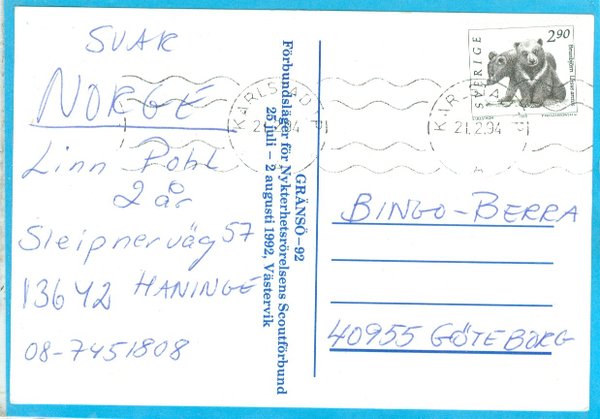 SVAR
NORGE
Linn Pohl
2 år
Sleipnerväg 57
13642 HANINGE
08-7451808
GRÄNSÖ–92
Förbundsläger för Nykterhetsrörelsens Scoutförbund
25 juli – 2 augusti 1992, Västervik
KARLSTAD
21.2.94
KARLSTAD
21.2.94
SVERIGE
2.90
Brunbjörn Ursus arctos
BINGO-BERRA
40955 GÖTEBORG